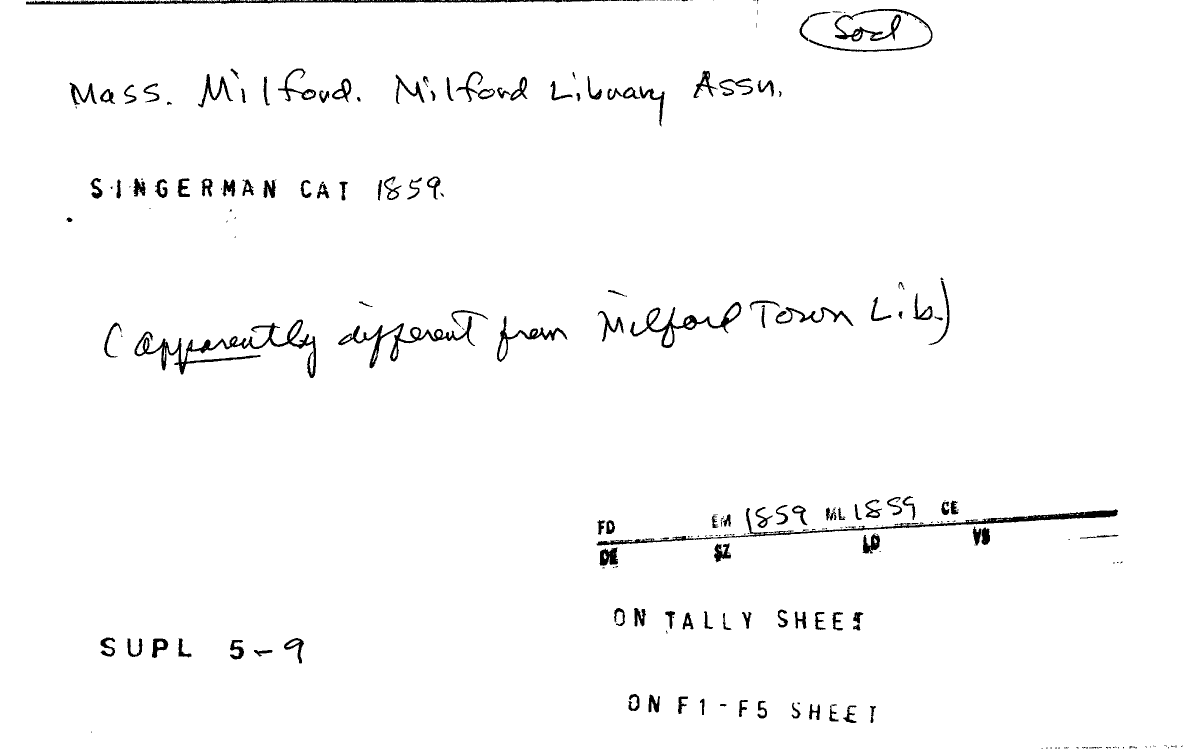 Socl
Mass. Milford. Milford Library Assn.
SINGERMAN CAT 1859.
(apparently different from Milford Town Lib.)
FD EM 1859 ML 1859 CE
DE SZ LD VS
ON TALLY SHEET
SUPL 5-9
ON F1-F5 SHEET